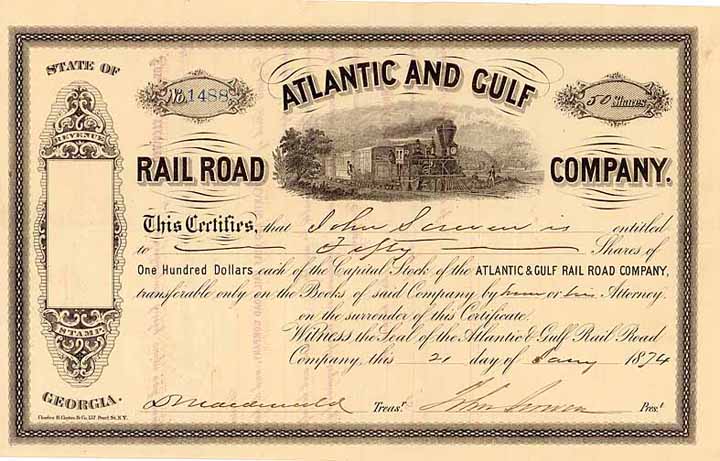 STATE OF
REVENUE
STAMP.
GEORGIA.
No. 1488
ATLANTIC AND GULF
50 Shares
RAIL ROAD COMPANY.
This Certifies, that John Screven is entitled
to Fifty Shares of
One Hundred Dollars each of the Capital Stock of the ATLANTIC & GULF RAIL ROAD COMPANY,
transferable only on the Books of said Company by him or his Attorney
on the surrender of this Certificate.
Witness the Seal of the Atlantic & Gulf Rail Road
Company, this 21 day of Jany 1874
Treasr. John Screven Prest.